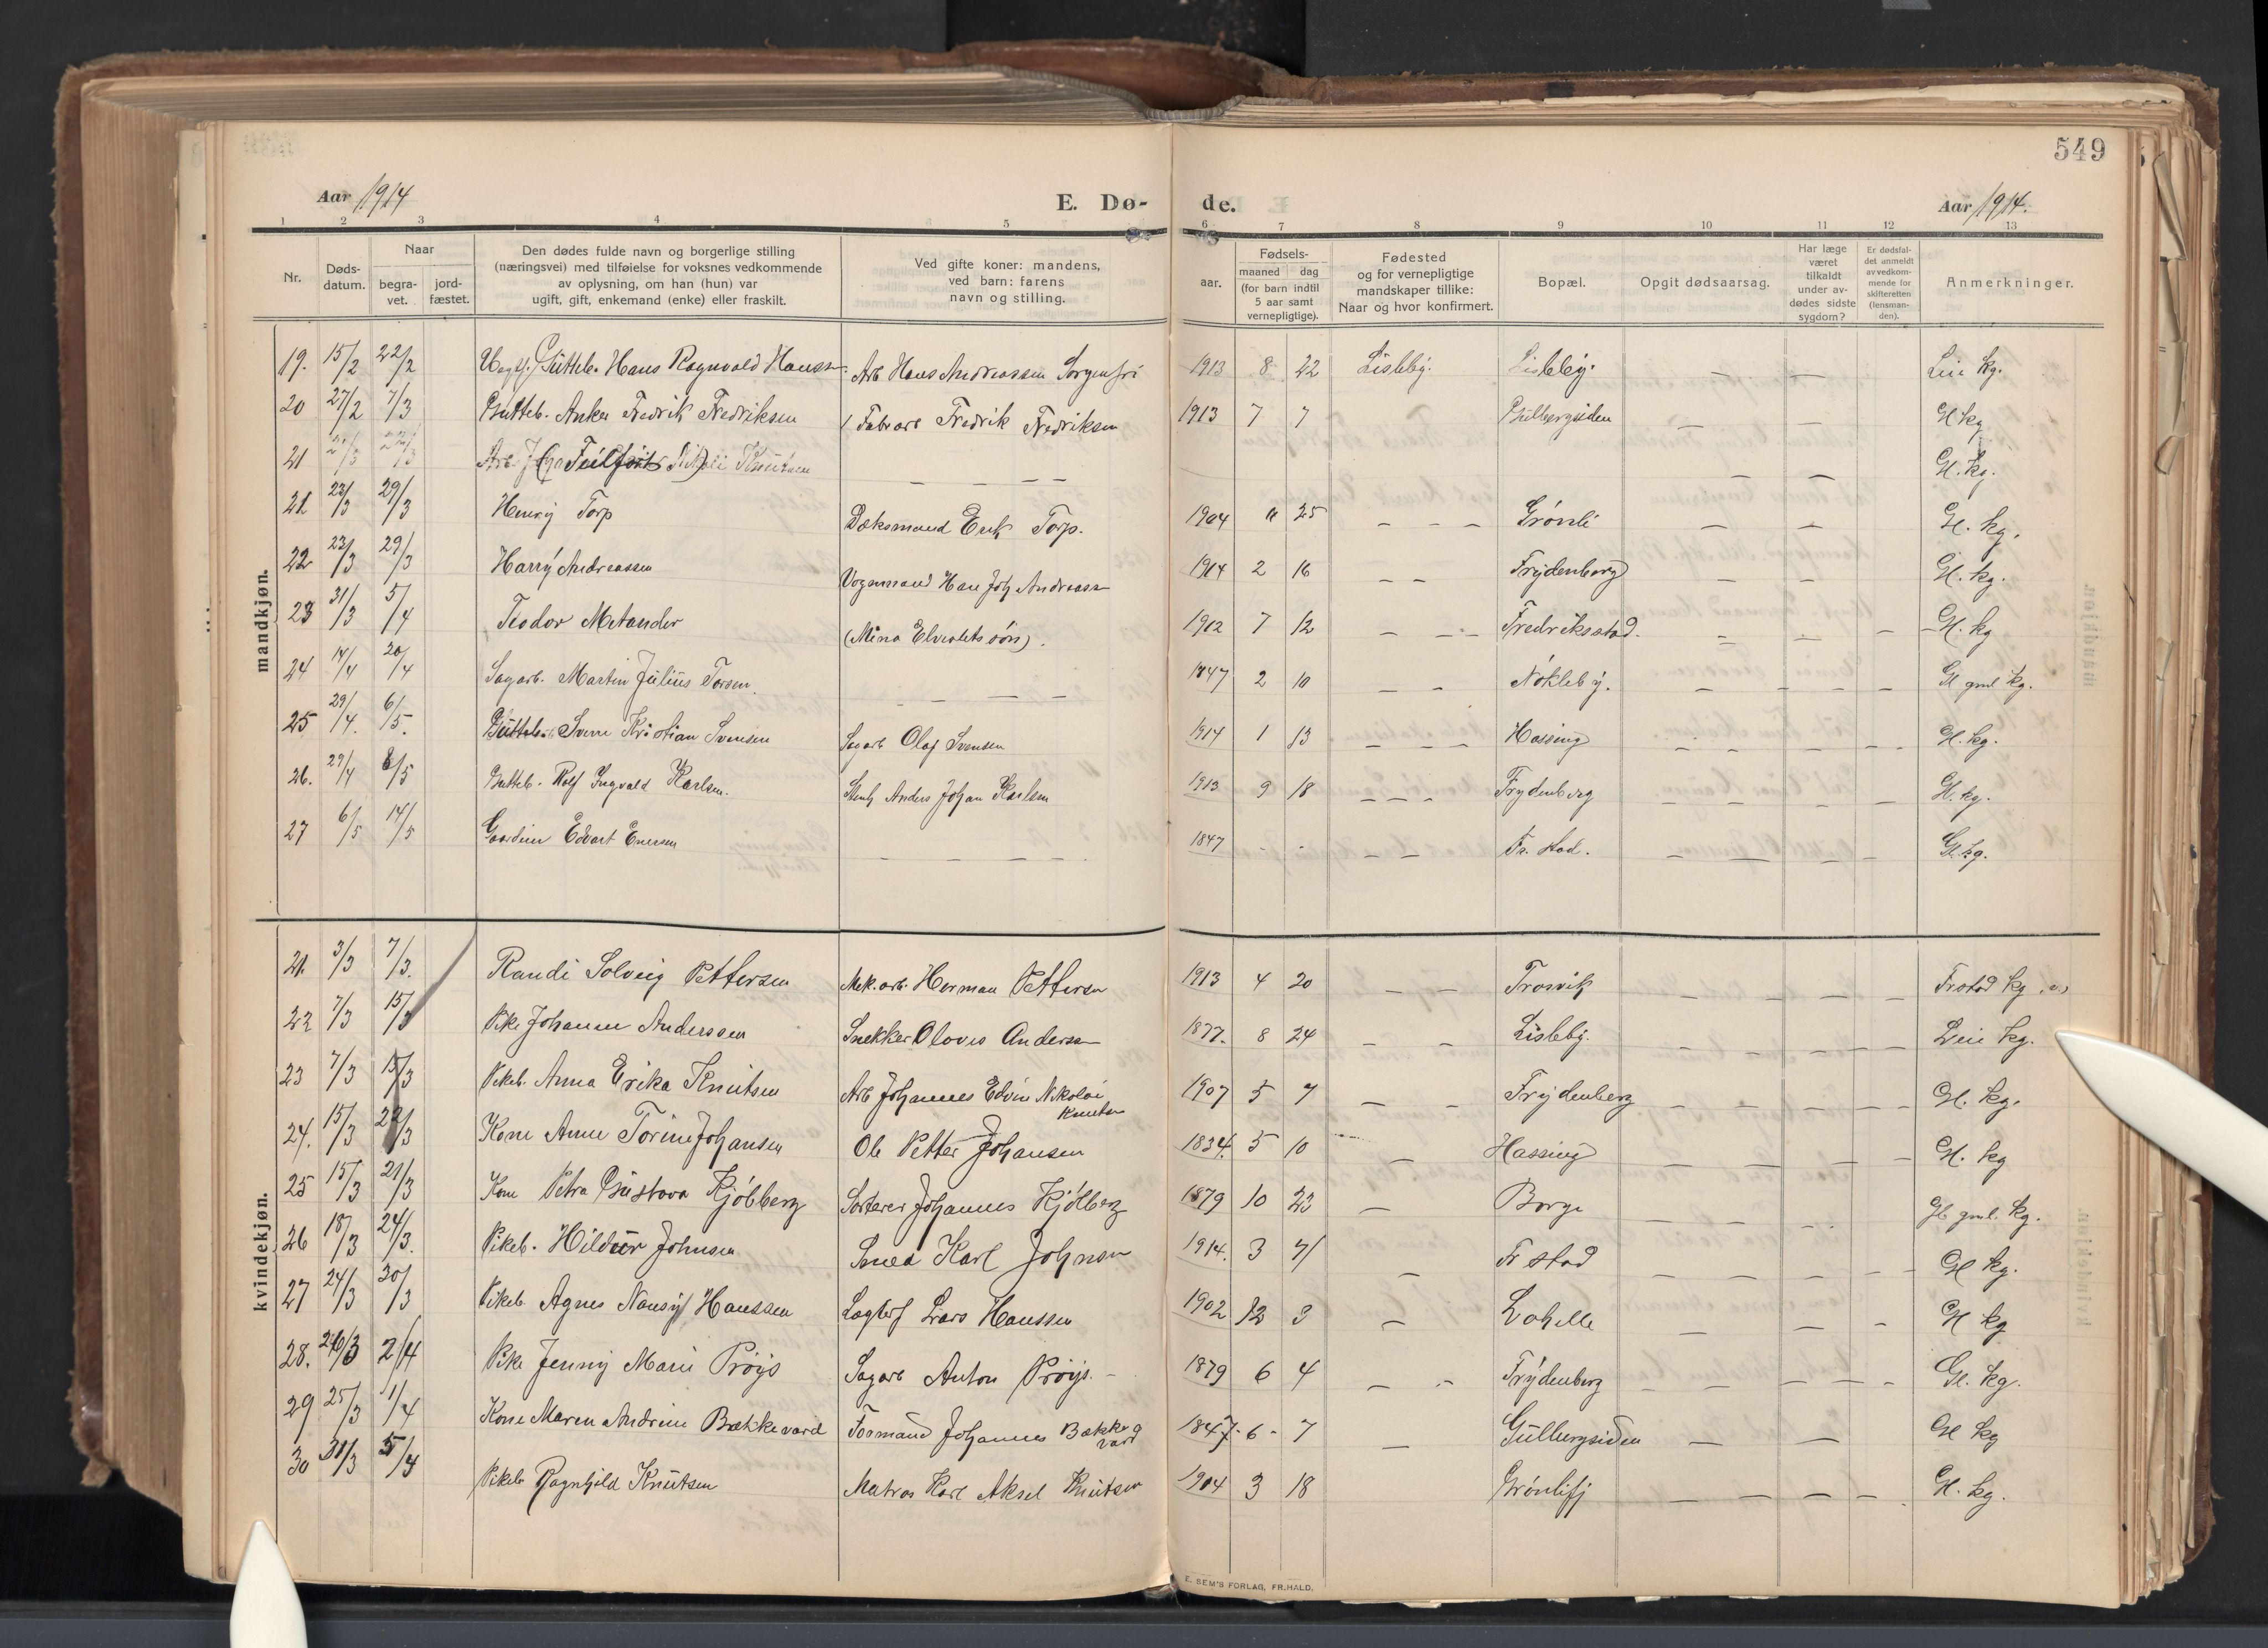 549
Aar 1914
E. Dø-
de.
Aar 1914.
1 2 3 4 5 6 7 8 9 10 11 12 13
Nr.
Døds-
datum.
Naar
begra-
vet.
jord-
fæstet.
Den dødes fulde navn og borgerlige stilling
(næringsvei) med tilføielse for voksnes vedkommende
av oplysning, om han (hun) var
ugift, gift, enkemand (enke) eller fraskilt.
Ved gifte koner: mandens,
ved barn: farens
navn og stilling.
aar.
Fødsels-
maaned dag
(for barn indtil
5 aar samt
vernepligtige).
Fødested
og for vernepligtige
mandskaper tillike:
Naar og hvor konfirmert.
Bopæl.
Opgit dødsaarsag.
Har læge
været
tilkaldt
under av-
dødes sidste
sygdom?
Er dødsfal-
det anmeldt
av vedkom-
mende for
skifteretten
(lensman-
den).
Anmerkninger.
mandkjøn.
19. 15/2 22/2 Gutteb. Hans Ragnvald Hanssen. Arb Hans Andreassen Sorgenfri 1913 8 22 Lisleby. Lisleby. — — Leie kg.
20 27/2 7/3 Gutteb. Anker Fredrik Fredriksen Fabr arb Fredrik Fredriksen 1913 7 7 Gulbergsiden — — Gl kg
21 Arb. Knutsen — — — — — — Gl. kg.
21 23/3 29/3 Henry Torp Dæksmand Erik Torp. 1904 11 25 — — — Grønli — — Gl. kg.
22 23/3 29/3 Harry Andreassen Vognmand Hans Joh Andreassen 1914 2 16 — — Frydenberg — — Gl. kg.
23 31/3 5/4 Teodor Metander (Mina) 1912 7 12 — — — Fredriksstad. — — — Gl. kg
24 14/4 20/4 Sagarb. Martin Julius Torsen. — — — — 1847 2 10 — — Nökleby. — — — — Gl gml kg.
25 29/4. 6/5. Gutteb. Sverre Kristian Svensen Sagarb Olaf Svensen 1914 1 13 — — — Hassing — — — — Gl. kg.
26. 29/4 8/5 Gutteb. Rolf Ingvald Karlsen. Stenh Anders Johan Karlsen 1913 9 18 — — — Frydenberg — — — — Gl. kg.
27 6/5 14/5 Gaardeier Edvart Enersen — — — — 1847 - - — — Fr. stad. — — — — Gl. kg.
kvindekjøn.
21. 3/3 7/3. Randi Solveig Pettersen Mek. arb. Herman Pettersen 1913 4 20 — — Trosvik — — — — Frstad kg
22 7/3 15/3 Pike Johanne Anderssen Snekker Olavis Anderssen 1877. 8 24 — — Lisleby. — — — — Leie kg.
23 7/3 15/3 Pikeb. Anna Erika Knutsen Arb Johannes Edvin Nikolai
Knutsen 1907 5 7 — — Frydenberg — — — — Gl. kg.
24. 15/3 22/3 Kone Anne Torine Johansen Ole Petter Johansen 1834. 5 10 — Hassing — — — — Gl. kg
25 15/3 21/3 Kone Petra Gustava Kjölberg Sorterer Johannes Kjölberg 1879 10 23 — Borge — — — Gl. gml. kg.
26 18/3 24/3. Pikeb. Hildur Johnsen Smed Karl Johnsen 1914. 3 7 — Fr stad — — — — Gl kg.
27 24/3 30/3 Pikeb Agnes Nansy Hanssen Lars Hanssen 1902 12 3 — Lahelle — — — Gl kg
28. 26/3 2/4 Pike Jenny Marie Pröijs Sagarb Anton Pröijs. 1879 6 4 — — Frydenberg — — — — Gl. kg.
29 25/3 1/4 Kone Maren Andrine Bækkevard Formand Johannes Bække-
vard 1847. 6 - 7 — Gulbergsiden — — Gl kg
30 31/3 5/4 Pikeb Ragnhild Knutsen Matros Karl Aksel Knutsen 1904 3 18 Grønlifj — — — — Gl. kg.
E. SEM'S FORLAG, FR.HALD.